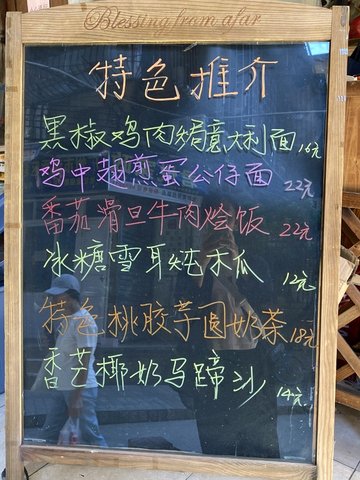 Blessing from afar
特色推介
黑椒鸡肉焗意大利面 16元
鸡中翅煎蛋公仔面 22元
番茄滑旦牛肉烩饭 22元
冰糖雪耳炖木瓜 12元
特色桃胶芋圆奶茶 18元
香芒椰奶马蹄沙 14元